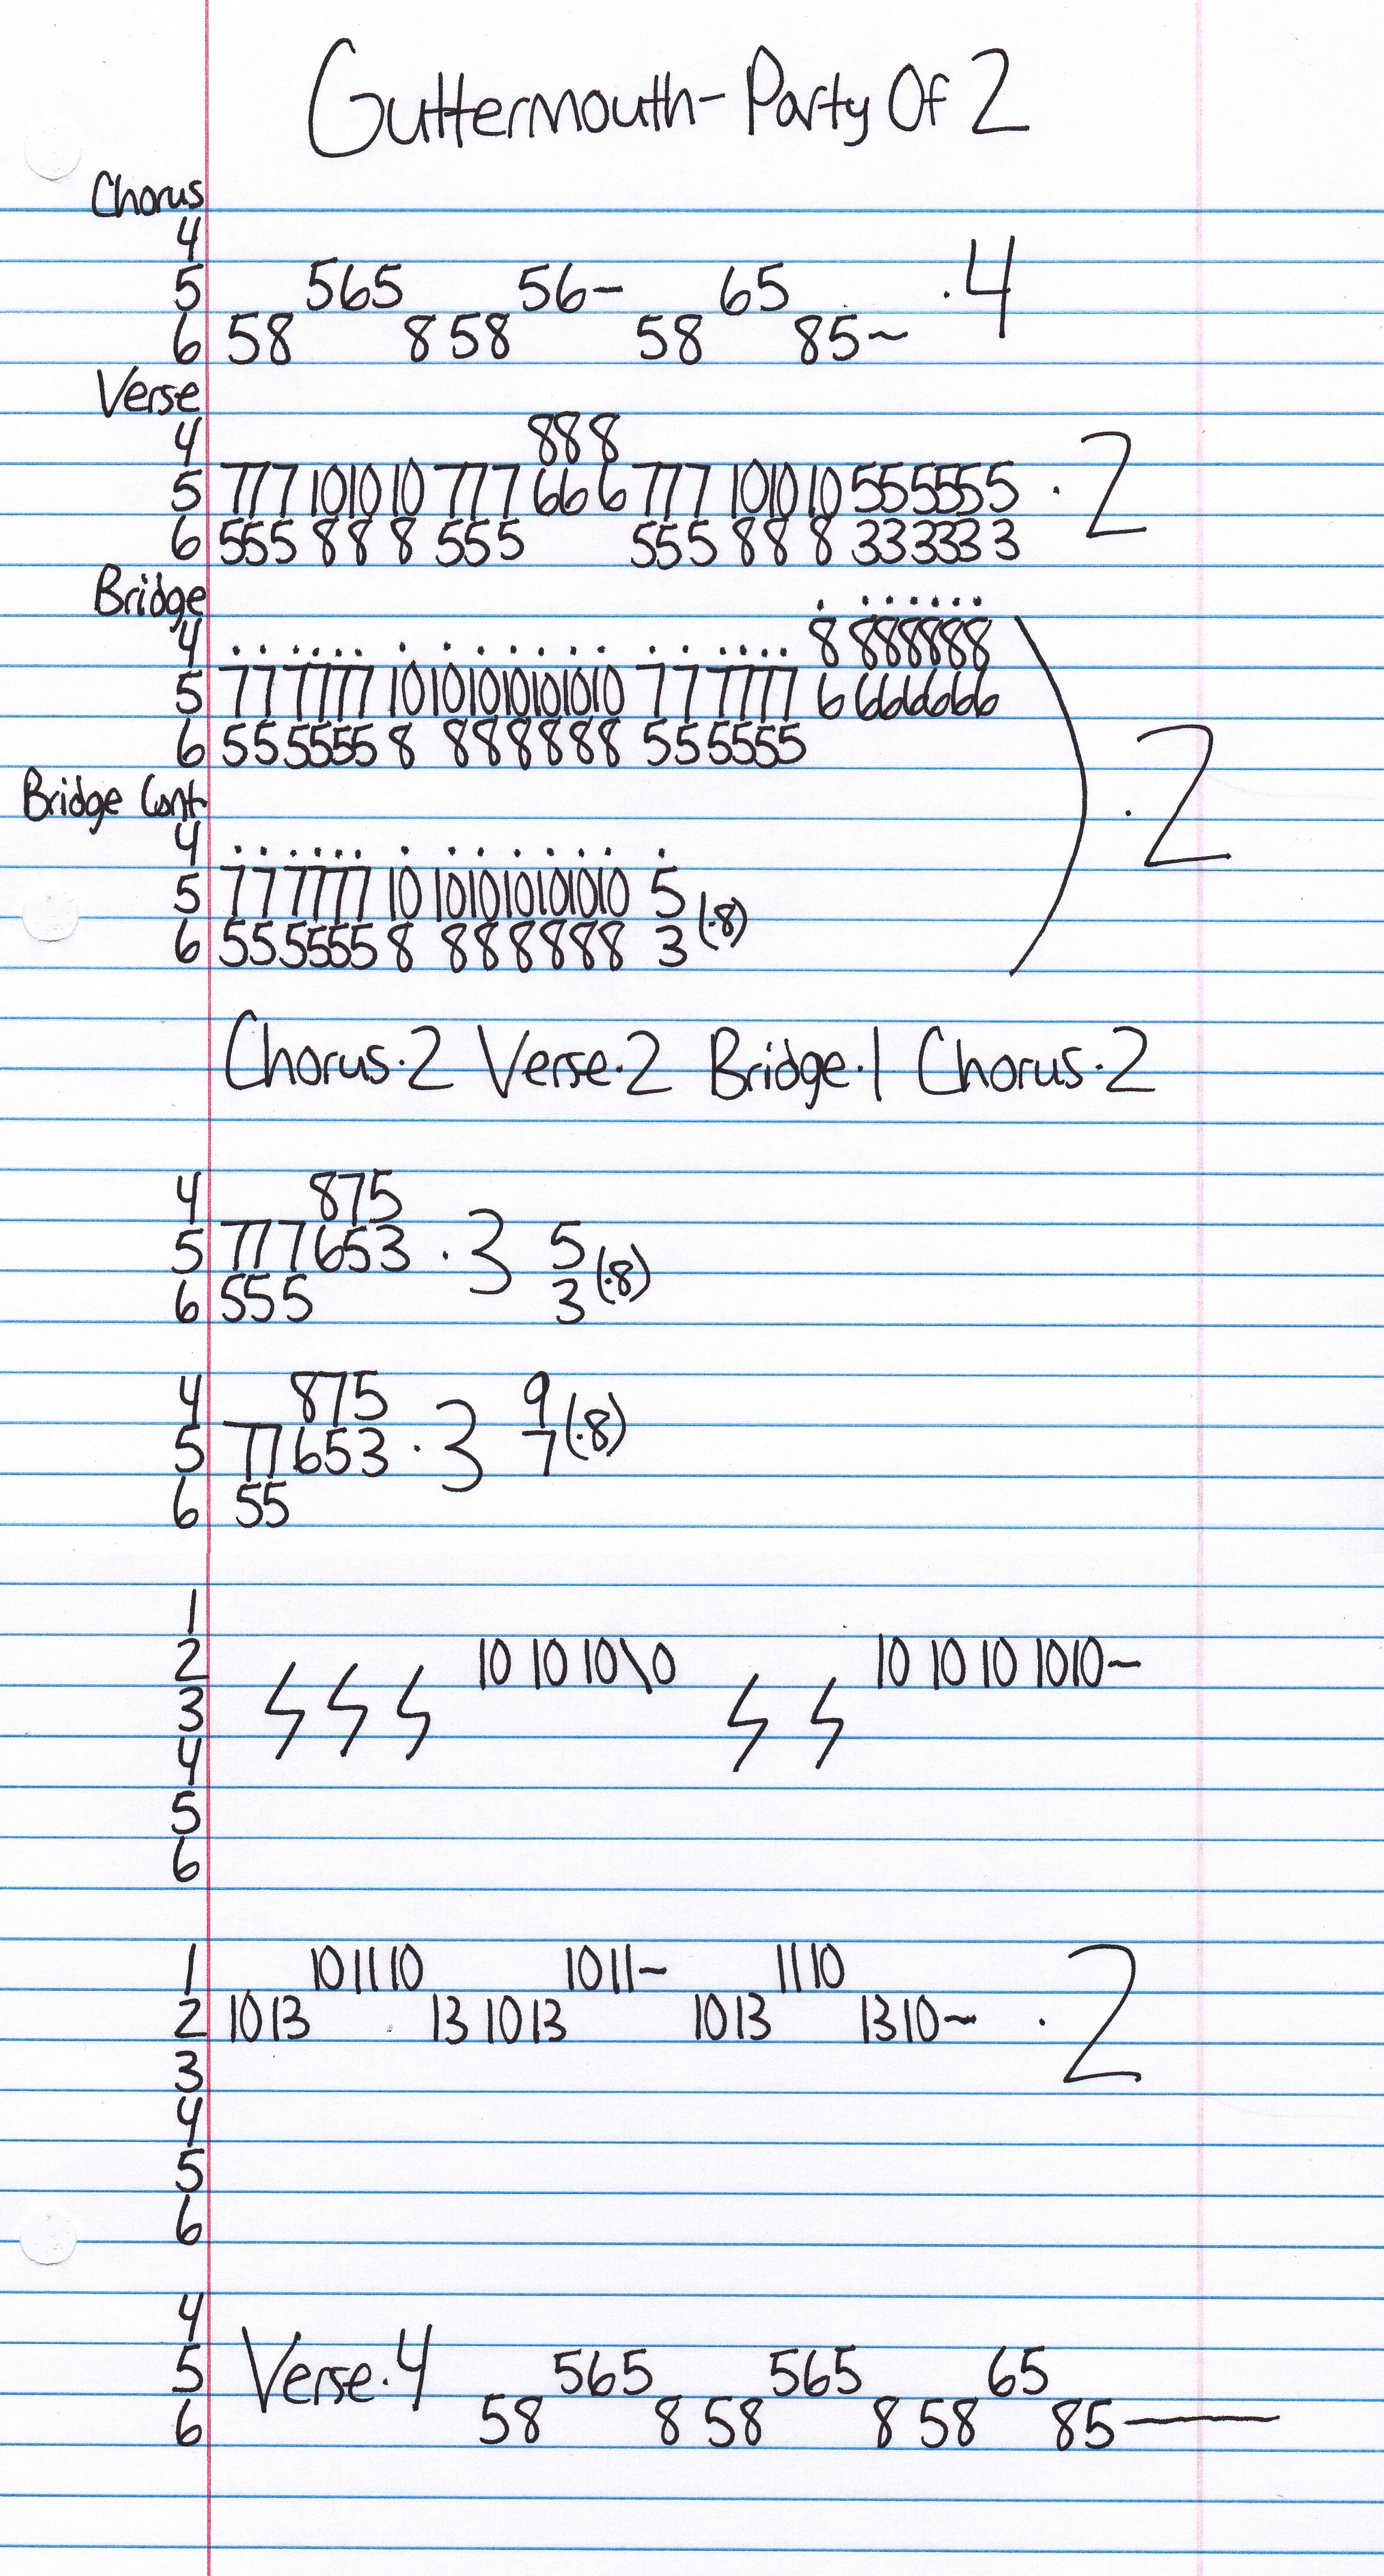 Guttermouth - Party Of 2
Chorus
4
5 565 56- 65 .4
6 58 8 58 58 85~
Verse
4 888
5 777 101010 777 666 777 101010 555555 .2
6 555 888 555 555 888 333333
Bridge . .......
4 ...... ....... ...... 8 888888
5 777777 10 101010101010 777777 6 666666 ) .2
6 555555 8 888888 555555
Bridge Cont.
4 ...... ....... .
5 777777 10 101010101010 5 (.8)
6 555555 8 888888 3
Chorus.2 Verse.2 Bridge.1 Chorus.2
4 875
5 777653 .3 5 (.8)
6 555 3
4 875 9 (.8)
5 77653 .3 7
6 55
1
2 10 10 10\0 10 10 10 1010~
3
4
5
6
1 101110 1011~ 1110
2 1013 13 1013 1013 1310~ .2
3
4
5
6
4
5 Verse.4 565 565 65
6 58 8 58 8 58 85—